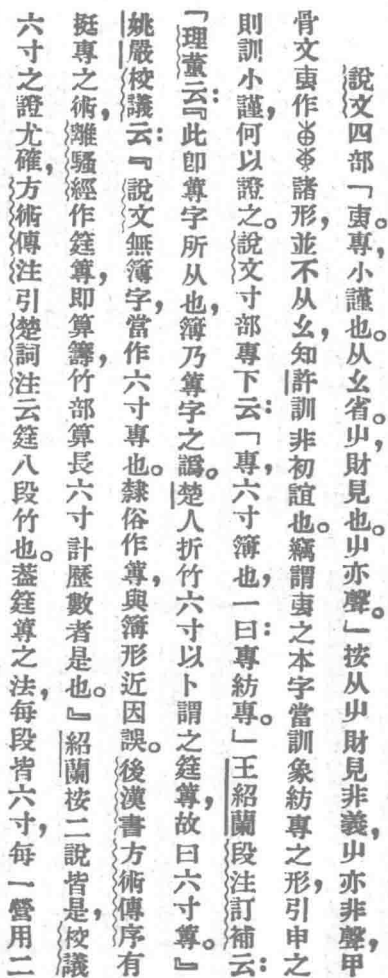 說文四部「叀。專，小謹也。从幺省。屮，財見也。屮亦聲。」按从屮財見非義，屮亦非聲，甲
骨文叀作諸形，並不从幺，知許訓非初誼也。竊謂叀之本字當訓象紡專之形，引申之
則訓小謹，何以證之。說文寸部專下云：「專，六寸簿也，一曰：專紡專。」王紹蘭段注訂補云：
「理董云：『此卽篿字所从也，簿乃篿字之譌。楚人折竹六寸以卜謂之筳篿，故曰六寸篿。』
姚嚴校議云：『說文無簿字，當作六寸專也。隸俗作篿，與簿形近因誤。後漢書方術傳序有
挺專之術，離騷經作筳篿，卽算籌，竹部算長六寸計歷數者是也。』紹蘭桉二說皆是，校議
六寸之證尤確，方術傳注引楚詞注云筳八段竹也。葢筳篿之法，每段皆六寸，每一營用二